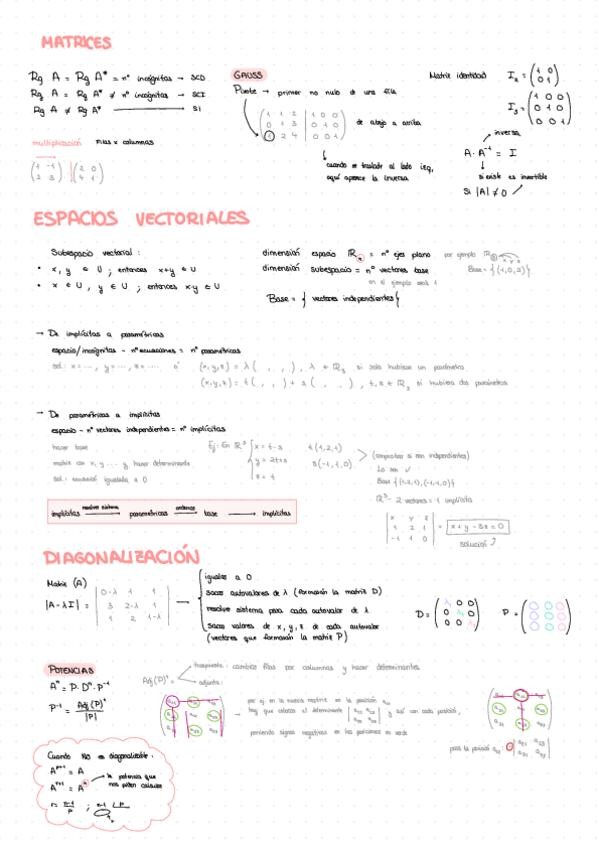 MATRICES
Rg A = Rg A* = nº incógnitas → SCD
Rg A = Rg A* ≠ nº incógnitas → SCI
Rg A ≠ Rg A* → SI
multiplicación Filas x columnas
(1 -1) (2 0)
(2 3) (4 1)
GAUSS
Pivote → primer no nulo de una fila
1 1 2 | 1 0 0
0 1 3 | 0 1 0
1 2 4 | 0 0 1
de abajo a arriba
cuando se traslade al lado izq,
aquí aparece la inversa
Matriz identidad
I₂ = (1 0
0 1)
I₃ = (1 0 0
0 1 0
0 0 1)
inversa
A · A⁻¹ = I
si existe es invertible
Si |A| ≠ 0
ESPACIOS VECTORIALES
Subespacio vectorial:
• x, y ∈ U; entonces x+y ∈ U
• x ∈ U, y ∈ U; entonces x·y ∈ U
dimensión espacio = nº ejes plano por ejemplo
dimensión subespacio = nº vectores base Base = {(1,0,2)}
en el ejemplo será 1
Base = { vectores independientes }
→ De implícitas a paramétricas
espacio/incógnitas - nº ecuaciones = nº paramétricas
sol: x = ..., y = ..., z = ... ó (x,y,z) = λ( , , ), λ ∈ R₃ si solo hubiese un parámetro
(x,y,z) = t( , , ) + s( , , ), t,s ∈ R₃ si hubiera dos parámetros
→ De paramétricas a implícitas
espacio - nº vectores independientes = nº implícitas
hacer base
matriz con x, y ... y hacer determinante
sol: ecuación igualada a 0
Ej: En R³ { x = t-s
y = 2t+s
z = t
t(1,2,1)
s(-1,1,0)
(comprobar si son independientes)
Lo son ✓
Base {(1,2,1),(-1,1,0)}
R³ - 2 vectores = 1 implícita
| x y z |
| 1 2 1 |
| -1 1 0 |
= x+y-3z=0
solución
implícitas resolver sistema → paramétricas → base → implícitas
DIAGONALIZACIÓN
Matriz (A)
|A-λI| =
0-λ 1 1
3 2-λ 1
1 2 1-λ
igualar a 0
sacar autovalores de λ (formarán la matriz D)
resolver sistema para cada autovalor de λ
sacar valores de x, y, z de cada autovalor
(vectores que formarán la matriz P)
D = (λ₁ 0 0
0 λ₂ 0
0 0 λ₃)
P =
POTENCIAS
Aⁿ = P · Dⁿ · P⁻¹
P⁻¹ = Adj(P)ᵗ / |P|
Adj(P)ᵗ
traspuesta: cambiar filas por columnas y hacer determinantes
adjunta:
por ej. en la nueva matriz en la posición a₁₁
hay que colocar el determinante y así con cada posición,
poniendo signos negativos en las posiciones en verde
para la posición
Cuando NO es diagonalizable:
= A
la potencia que
nos piden calcular